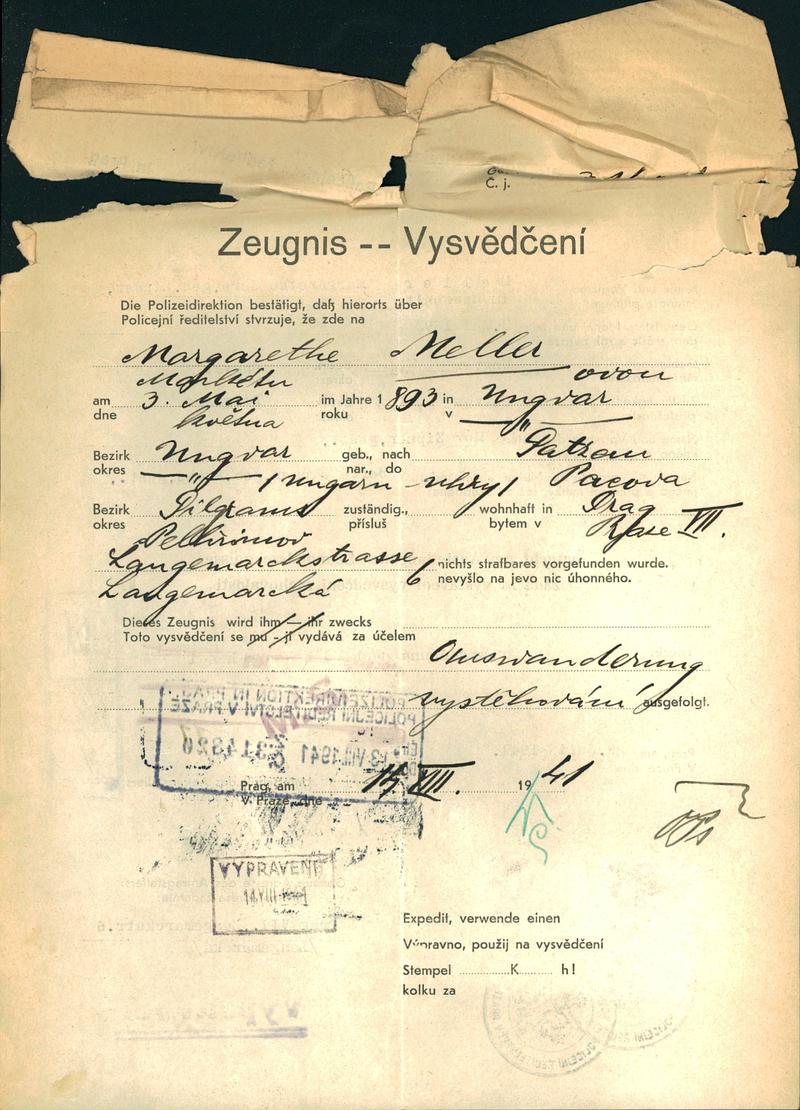 Č. j.
Zeugnis -- Vysvědčení
Die Polizeidirektion bestätigt, daß hierorts über
Policejní ředitelství stvrzuje, že zde na
Margarethe Meller
Markétu ovou
am 3. Mai im Jahre 1893 in Ungvar
dne května roku v "
Bezirk Ungvar geb., nach Patzau
okres " / Ungarn - Uhry / nar., do Pacova
Bezirk Pilgrams zuständig., wohnhaft in Prag
okres Pelhřimov přísluš bytem v Praze VII.
Langemarckstrasse 6 nichts strafbares vorgefunden wurde.
Langemarcká nevyšlo na jevo nic úhonného.
Dieses Zeugnis wird ihm — ihr zwecks
Toto vysvědčení se mu - jí vydává za účelem
Auswanderung
vystěhování ausgefolgt.
POLIZEIDIREKTION IN PRAG
POLICEJNÍ ŘEDITELSTVÍ V PRAZE
13. VIII. 1941
Prag, am 14. VIII. 1941
V Praze, dne
VYPRAVENÍ
14 VIII
Expedit, verwende einen
Výpravno, použij na vysvědčení
Stempel K h!
kolku za